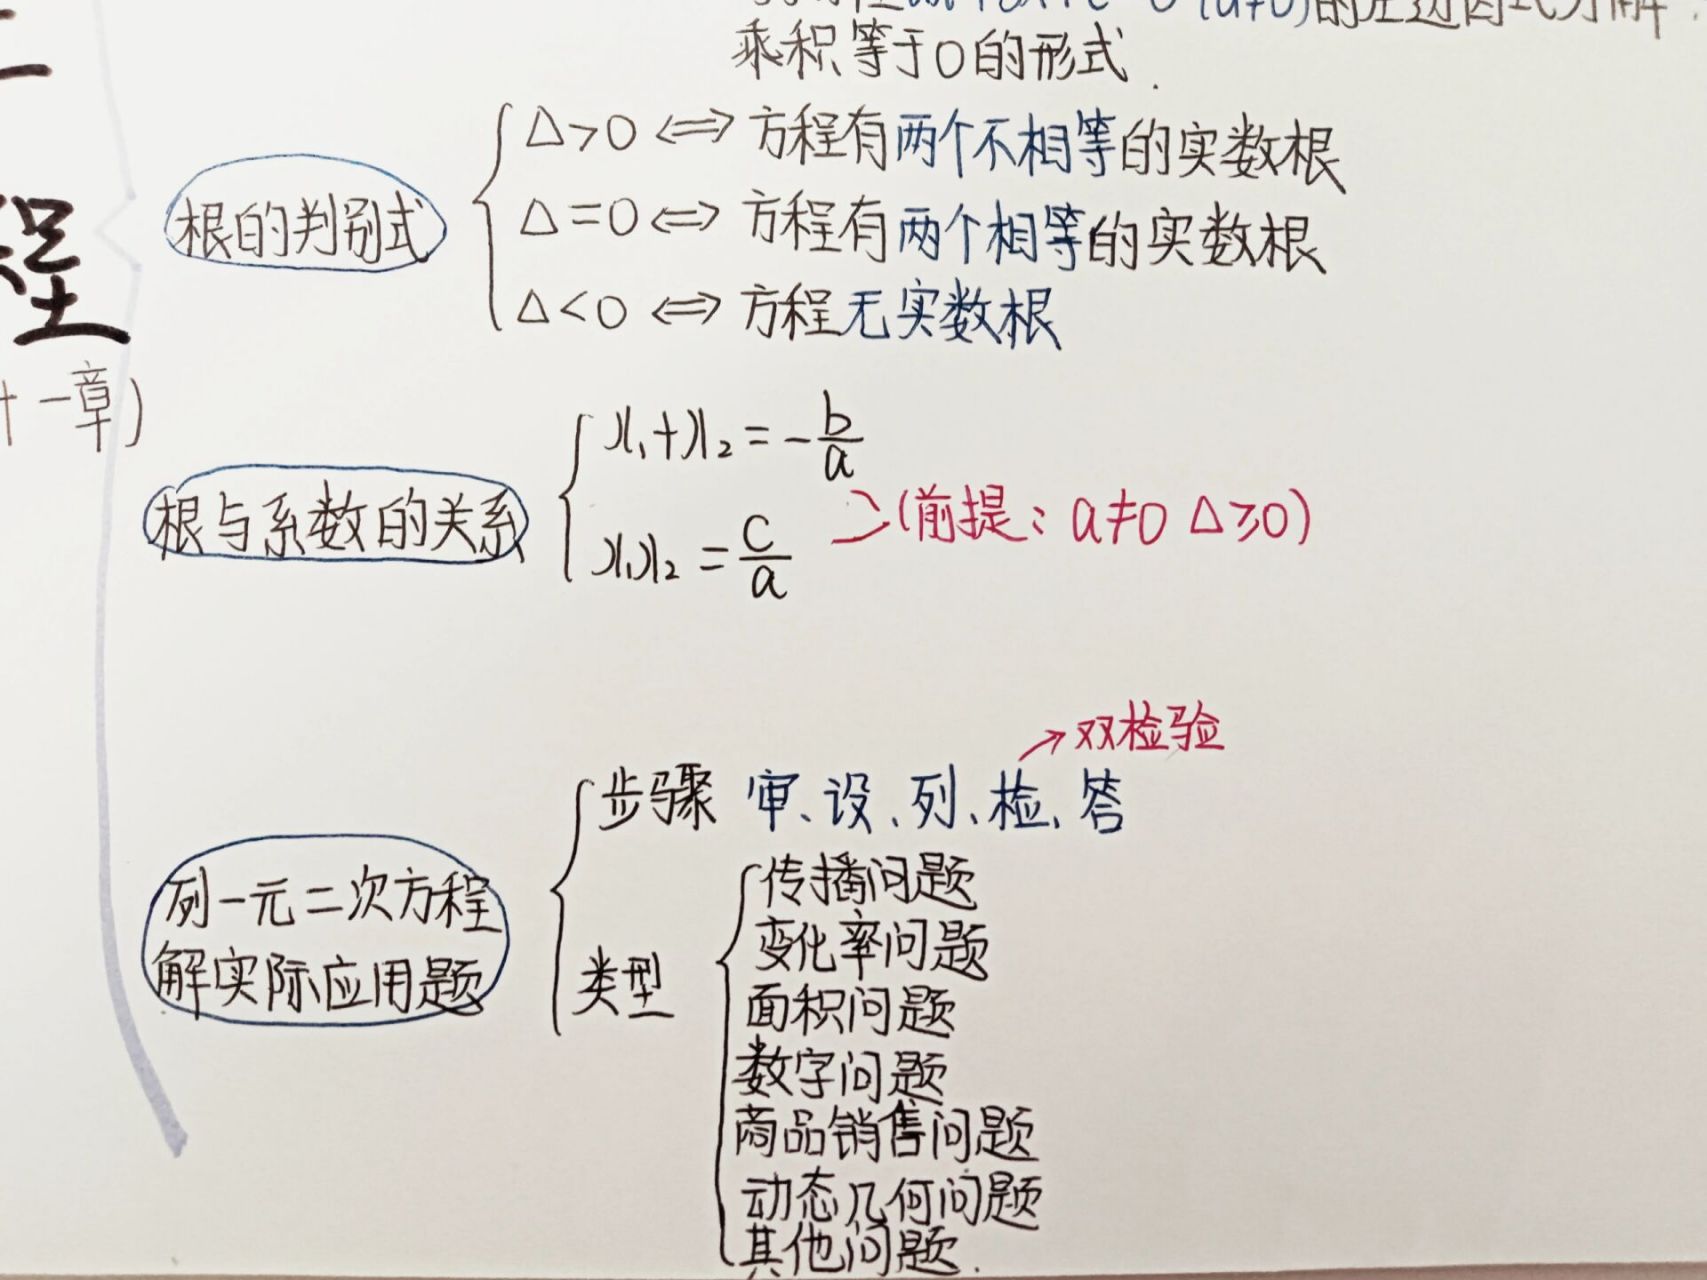 (a≠0)的左边因式分解
乘积等于0的形式.
程
十一章)
根的判别式
Δ>0 ⇔ 方程有两个不相等的实数根
Δ=0 ⇔ 方程有两个相等的实数根
Δ<0 ⇔ 方程无实数根
根与系数的关系
x₁+x₂=-b/a
x₁x₂=c/a
(前提:a≠0 Δ≥0)
列一元二次方程
解实际应用题
双检验
步骤 审、设、列、检、答
类型
传播问题
变化率问题
面积问题
数字问题
商品销售问题
动态几何问题
其他问题.